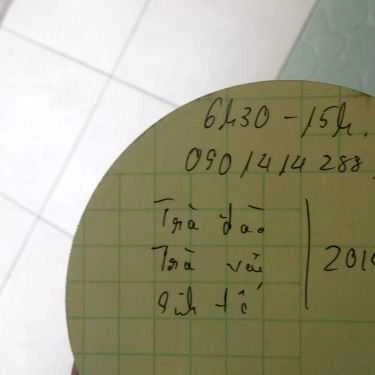 6h30 - 15h.
090 1414 288
Trà đào
Trà vải
Sinh tố